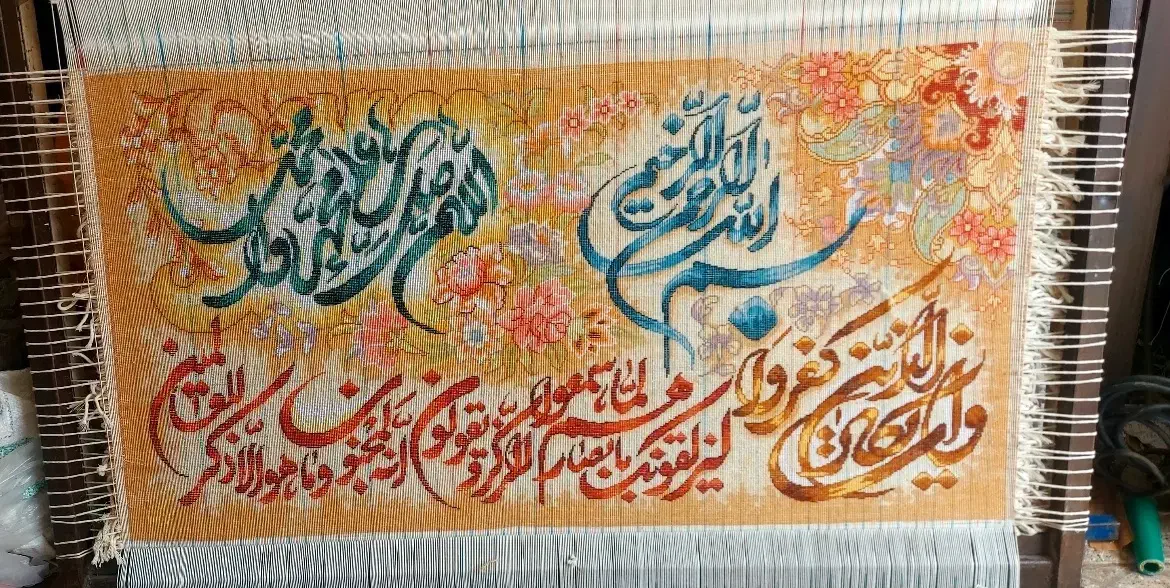 بسم الله الرحمن الرحیم
اللهم صل علی محمد و آل محمد
وان یکاد الذین کفروا
لیزلقونک بابصارهم لما سمعوا الذکر و یقولون انه لمجنون
وما هو الا ذکر للعالمین